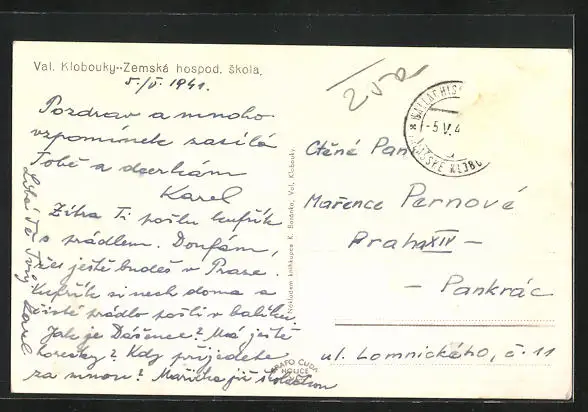 Val. Klobouky--Zemská hospod. škola.
5./V. 1941.
Pozdrav a mnoho
vzpomínek zasílá
Tobě a dcerkám
Karel
Zítra Ti pošlu kufřík
s prádlem. Doufám,
že ještě budeš v Praze.
Kufřík si nech doma a
čisté prádlo pošli v balíku.
Jak je Dášence? Má ještě
horečky? Kdy přijedete
za mnou? Mařička již
Líbá Tě Tvůj Karel
Nákladem knihkupce K. Basánka, Val. Klobouky.
GRAFO ČUDA
HOLICE
5.V.4
Ctěné Paní
Mařence Pernové
Praha XIV –
– Pankrác
ul. Lomnického, č. 11